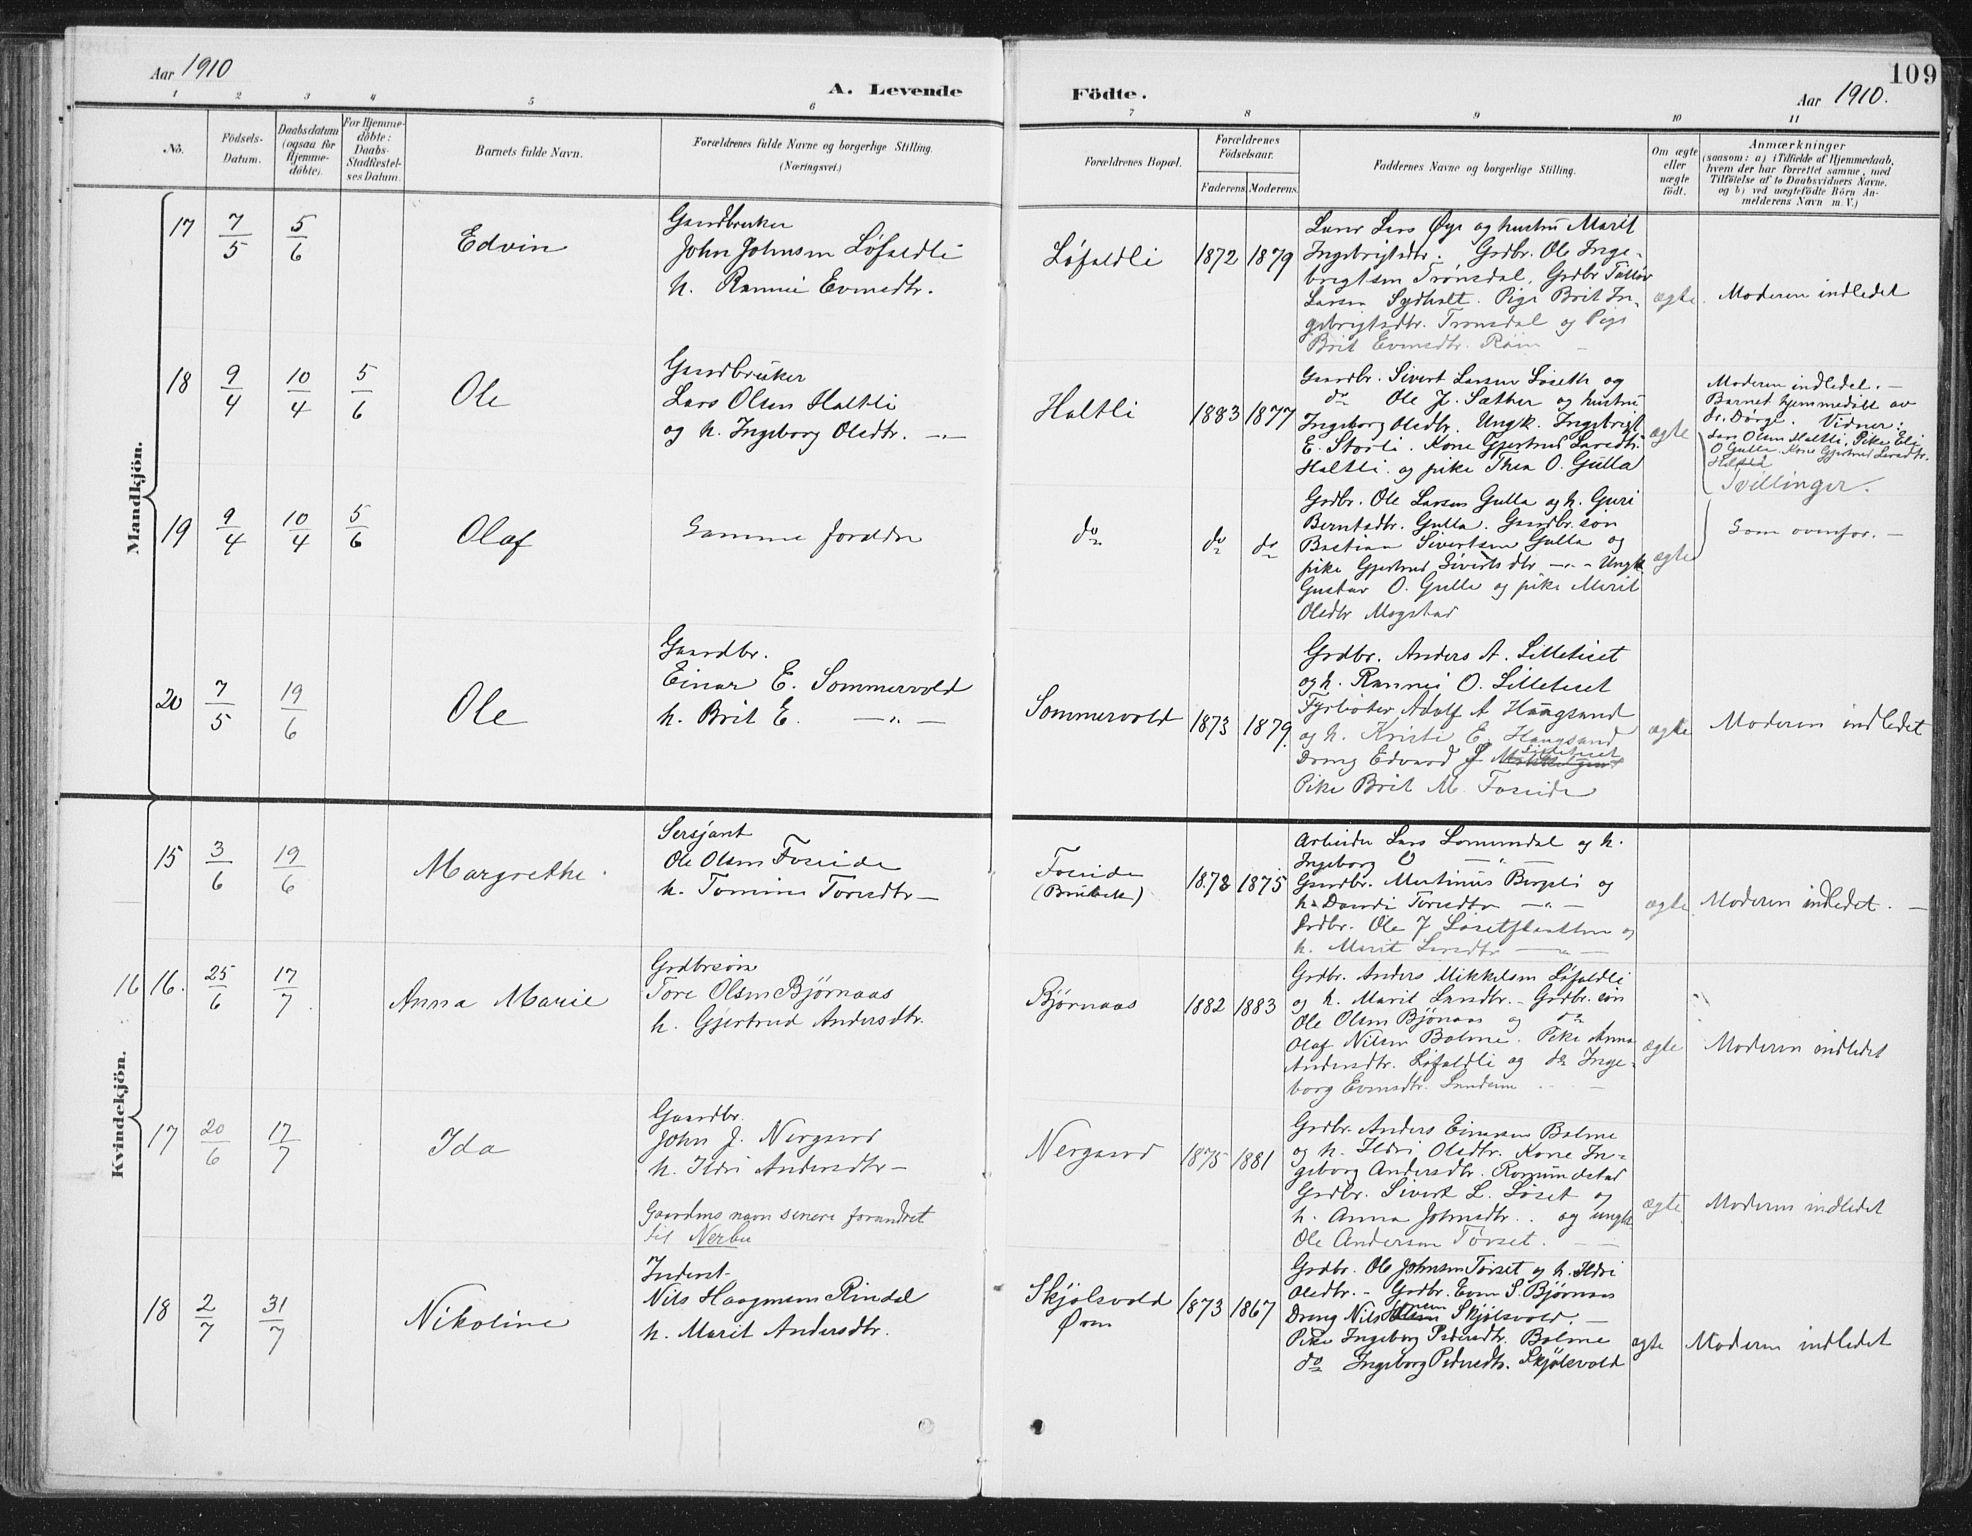 Aar 1910
A. Levende
Födte.
Aar 1910.
109
1 2 3 4 5 6 7 8 9 10 11
No.
Födsels-
Datum.
Daabsdatum
(ogsaa for
Hjemme-
döbte).
For Hjemme-
döbte:
Daabs-
Stadfæstel-
ses Datum.
Barnets fulde Navn.
Forældrenes fulde Navne og borgerlige Stilling.
(Næringsvei.)
Forældrenes Bopæl.
Forældrenes
Födselsaar.
Faderens. Moderens.
Faddernes Navne og borgerlige Stilling.
Om ægte
eller
uægte
födt.
Anmærkninger
(saasom: a) i Tilfælde af Hjemmedaab,
hvem der har forrettet samme, med
Tilföielse af to Daabsvidners Navne.
og b) ved uægtefödte Börn An-
melderens Navn m. V.)
Mandkjön.
17 7/5 5/6 Edvin
Gaardbruker
John Johnsen Løfaldli
h. Rannei Evensdtr.
Løfaldli 1872 1879
Lars Øye og hustru Marit
Ingebrigtsdtr. Grdbr. Ole Inge-
brigtsen Trønsdal, Grdbr
Larsen Sydhalt. Pige Brit In-
gebrigtsdtr. Trønsdal og Pige
Brit Evensdtr.
ægte Moderen indledet
18 9/4 10/4 5/6 Ole
Gaardbruker
Lars Olsen Haltli
og h. Ingeborg Olsdtr. -"-
Haltli 1883 1877
Gaardbr. Sivert Larsen Løseth og
do Ole J. Sæther og hustru
Ingeborg Olsdtr. Ungk. Ingebrigt
E. Storli. Kone Gjertrud Larsdtr
Haltli og pike Thea O. Gulla
ægte
Moderen indledet. -
Barnet hjemmedøbt av
dr. Dørge. Vidner:
Lars Olsen Haltli, Pike Eli
O Gulla. Kone Gjertrud Larsdtr.
Haltli
Tvillinger.
19 9/4 10/4 5/6 Olaf
Samme foreldre
do do do
Grdbr. Ole Larsen Gulla og h. Guri
Berntsdtr. Gulla. Gaardbr.søn
Bastian Sivertsen Gulla og
pike Gjertrud Sivertsdtr -"- Ungk.
Gustav O. Gulla og pike Marit
Olsdtr Mogstad
ægte Som ovenfor. -
20 7/5 19/6 Ole
Gaardbr.
Einar E. Sommervold
h. Brit E. -"-
Sommervold 1873 1879.
Grdbr. Anders A. Lilleteiset
og h. Rannei O. Lilleteiset
Fyrbøter Adolf A Haugsand
og h. Kristi E. Haugsand
Dreng Edvard J Lilleteiset
Pike Brit M. Foseide
ægte Moderen indledet
Kvindekjön.
15 3/6 19/6 Margrethe.
Sersjant
Ole Olsen Foseide
h. Tomine Toresdtr -
Foseide
(Brubæk)
1872 1875
Arbeider Lars Lomundal og h.
Ingeborg O -"-
Gaardbr. Martinus Bergli og
h. Toresdtr -"-
Grdbr. Ole J Løsetflaatten og
h. Marit Larsdtr -"-
ægte Moderen indledet. -
16 16. 25/6 17/7 Anna Marie
Grdbrsøn
Tore Olsen Bjørnaas
h. Gjertrud Andersdtr.
Bjørnaas 1882 1883
Grdbr. Anders Mikkelsen Løfaldli
og h. Marit Larsdtr. - Grdbr.søn
Ole Olsen Bjønaas og do
Olaf Nilsen Bolme. Pike Anna
Andersdtr. Løfaldli og do Inge-
borg Evensdtr.
ægte Moderen indledet
17 20/6 17/7 Ida
Gaardbr.
John J. Nergaard
h. Ildri Andersdtr -
Gaardens navn senere forandret
til Nerbu
Nergaard 1875 1881
Grdbr. Anders Einarsen Bolme
og h. Ildri Olsdtr. Kone In-
geborg Andersdtr. Romundstad
Grdbr. Sivert L. Løset og
h. Anna Johnsdtr. og ungk
Ole Andersen Tørset.
ægte Moderen indledet
18 2/7 31/7 Nikoline
Inderst
Nils Haagensen Rindal
h. Marit Andersdtr.
Skjølsvold
Øvre
1873 1867
Grdbr. Ole Johnsen Tørset og h. Ildri
Olsdtr. - Grdbr. Even S. Bjørnaas
Dreng Nils Skjølsvold. -
Pike Ingeborg Pedersdtr. Bolme
do Ingeborg Pedersdtr. Skjølsvold
ægte Moderen indledet